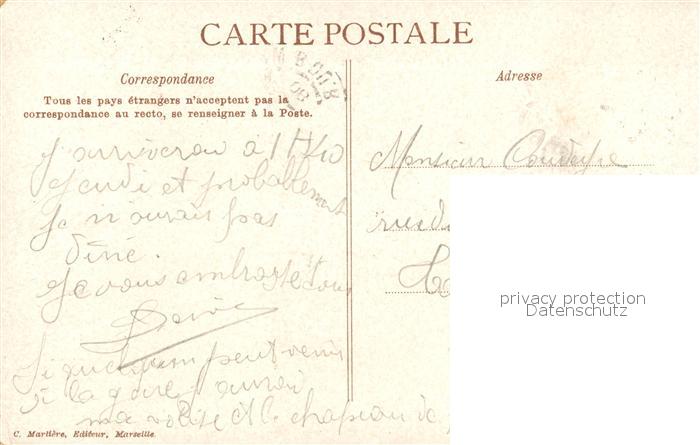 CARTE POSTALE
Correspondance
Tous les pays étrangers n'acceptent pas la
correspondance au recto, se renseigner à la Poste.
J'arriverai à 1 H 40
Jeudi et probablement
Je n'aurais pas
diné.
Je vous embrasse tous
Si quelqu'un peut venir
à la gare j'aurai
ma valise et le chapeau de
C. Martière, Editeur, Marseille
Adresse
Monsieur
rue d
privacy protection
Datenschutz